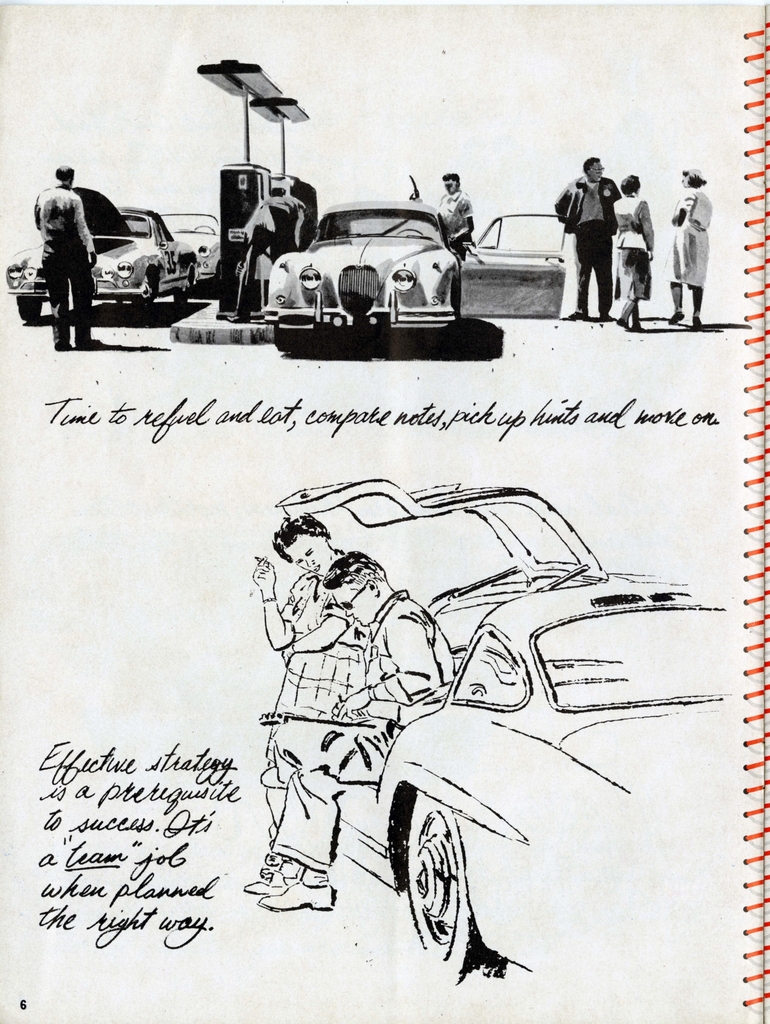 Time to refuel and eat, compare notes, pick up hints and move on.
Effective strategy
is a prerequisite
to success. It's
a "team" job
when planned
the right way.
6